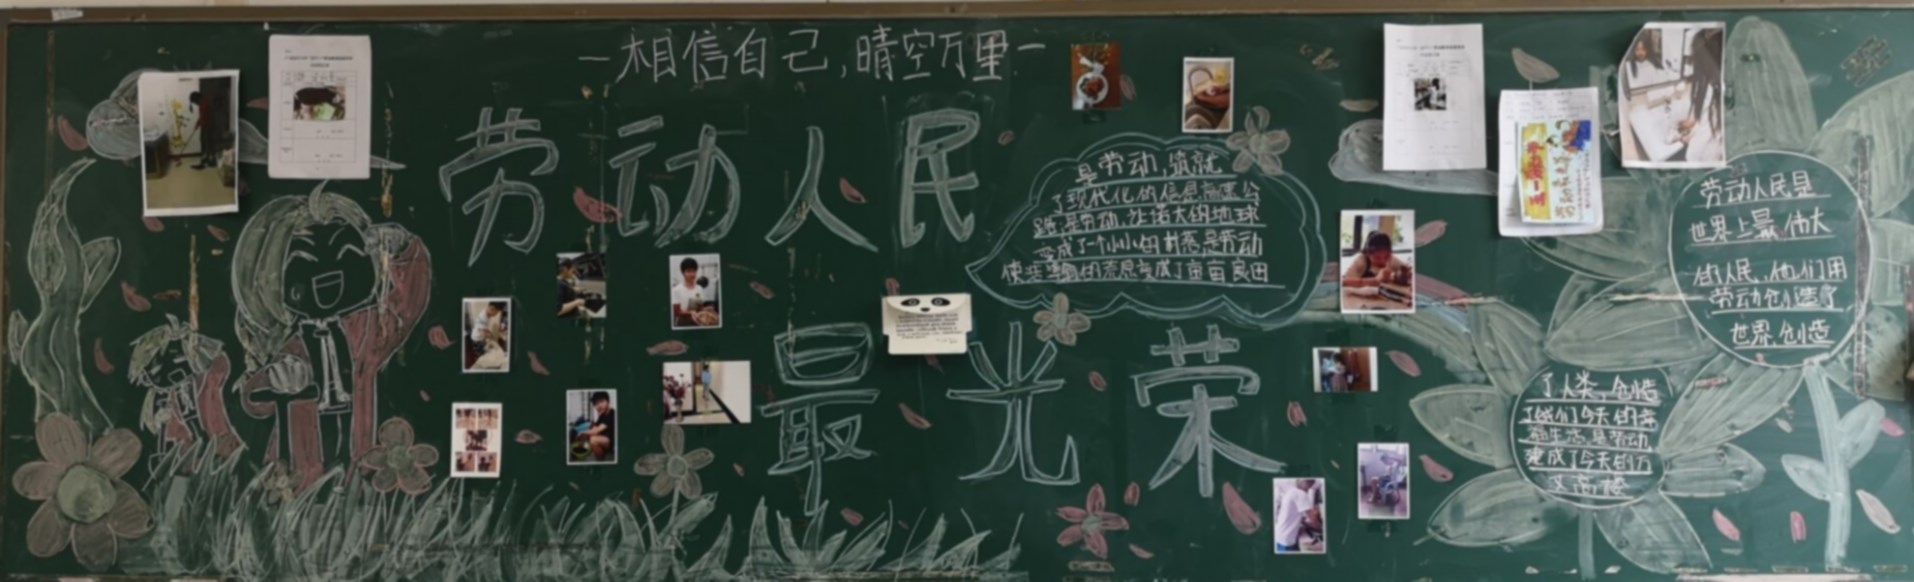 一相信自己,晴空万里一
劳动人民
最光荣
是劳动,筑就
了现代化的信息高速公
路,是劳动,让偌大的地球
变成了个小小的村落是劳动
使荒芜的荒原变成了亩亩良田
劳动人民是
世界上最伟大
的人民,他们用
劳动创造了
世界,创造
了人类,创造
了我们今天的幸
福生活是劳动
建成了今天的万
丈高楼